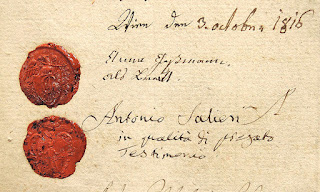 Wien den 3 octobre 1816
Anna
als
Antonio Salieri
in qualità di pregato
Testimonio